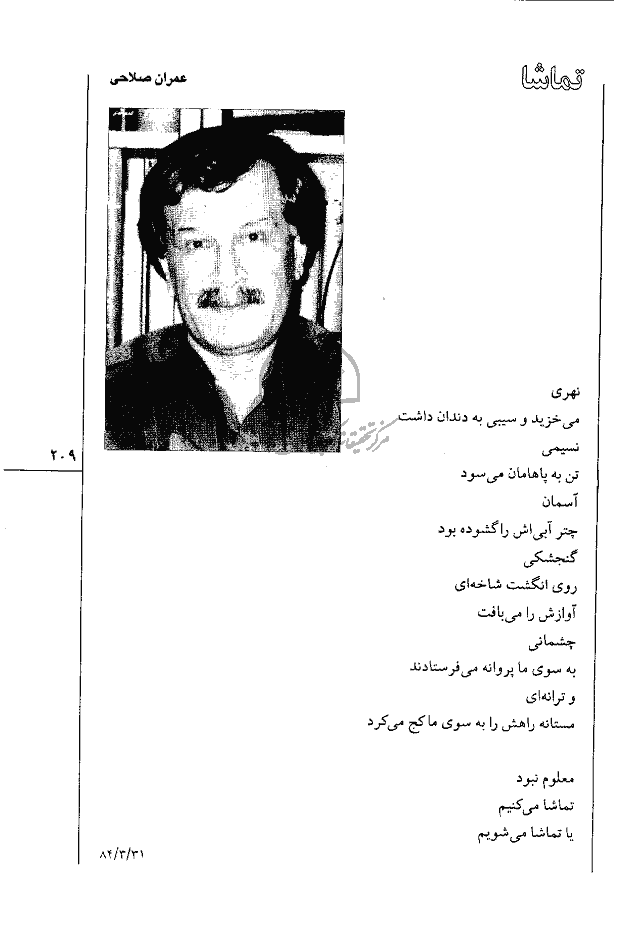 تماشا
عمران صلاحی
نهری
می‌خزید و سیبی به دندان داشت
نسیمی
تن به پاهامان می‌سود
آسمان
چتر آبی‌اش را گشوده بود
گنجشکی
روی انگشت شاخه‌ای
آوازش را می‌بافت
چشمانی
به سوی ما پروانه می‌فرستادند
و ترانه‌ای
مستانه راهش را به سوی ما کج می‌کرد
معلوم نبود
تماشا می‌کنیم
یا تماشا می‌شویم
۸۴/۳/۳۱
۲۰۹
مرکز تحقیقات